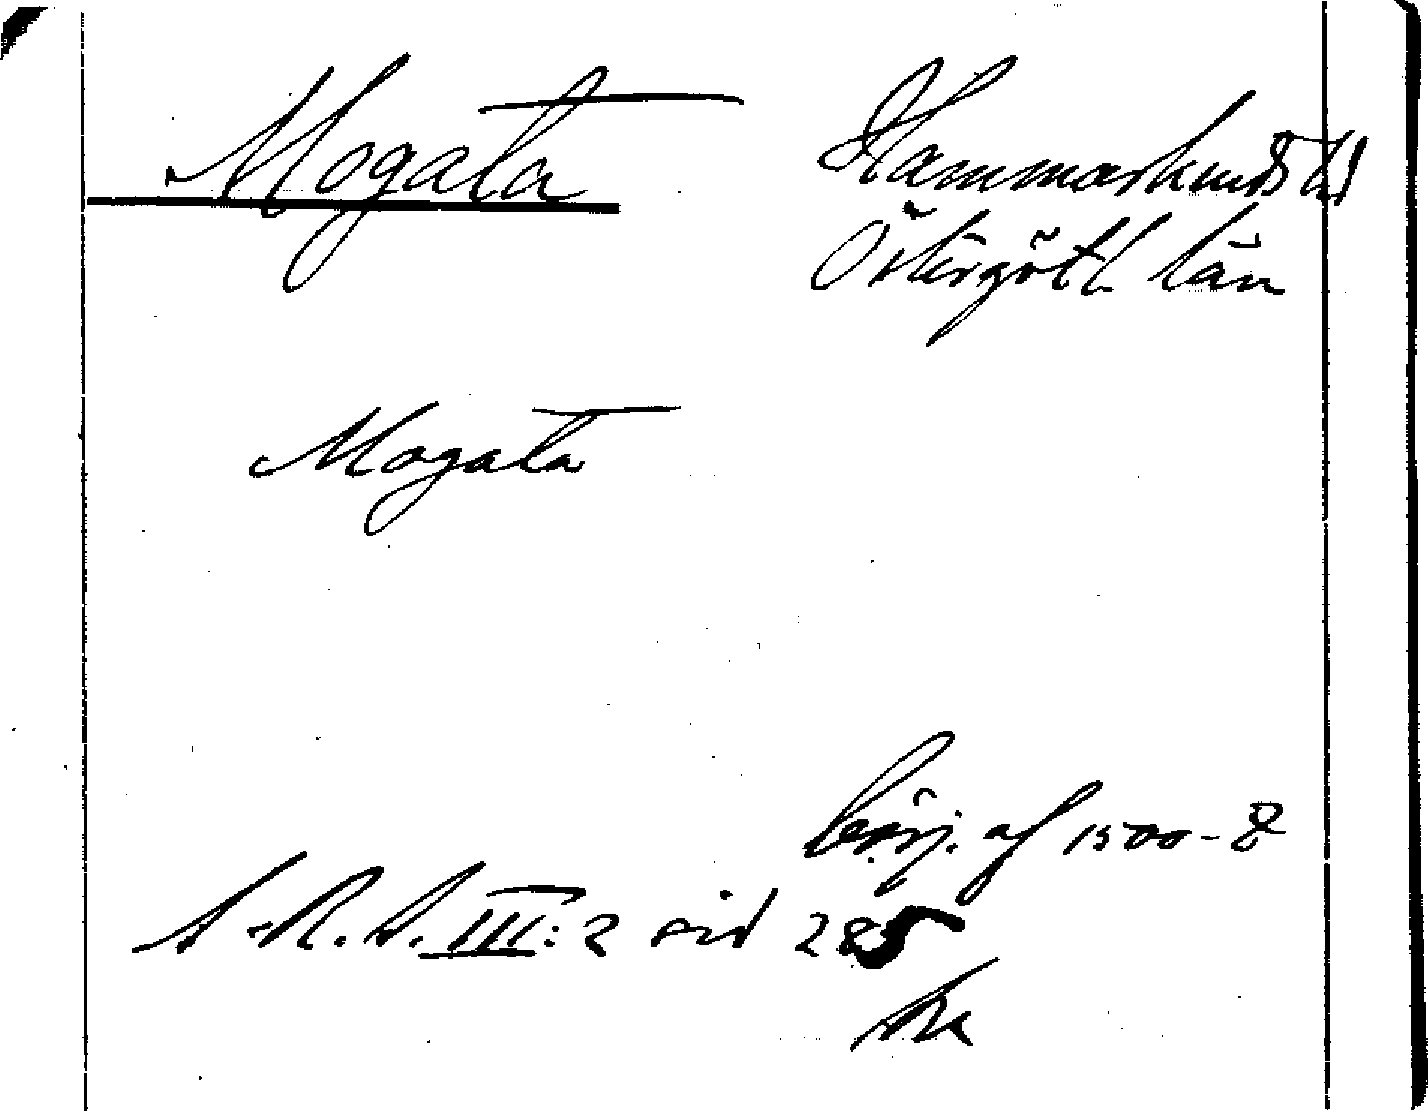 Mogata Hammarkinds hd
Östergötl. län
Mogata
börj. af 1500-t
S.R.S. III:2 sid 285